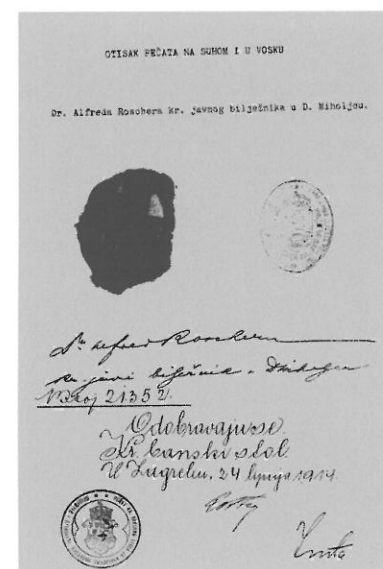 OTISAK PEČATA NA SUHOM I U VOSKU
Dr. Alfreda Roschera kr. javnog bilježnika u D. Miholjcu.
Dr Alfred Roscher
kr. javni bilježnik u D Miholjcu
Broj 21352.
Odobravaju se.
Kr. banski stol.
U Zagrebu, 24 lipnja 1914.